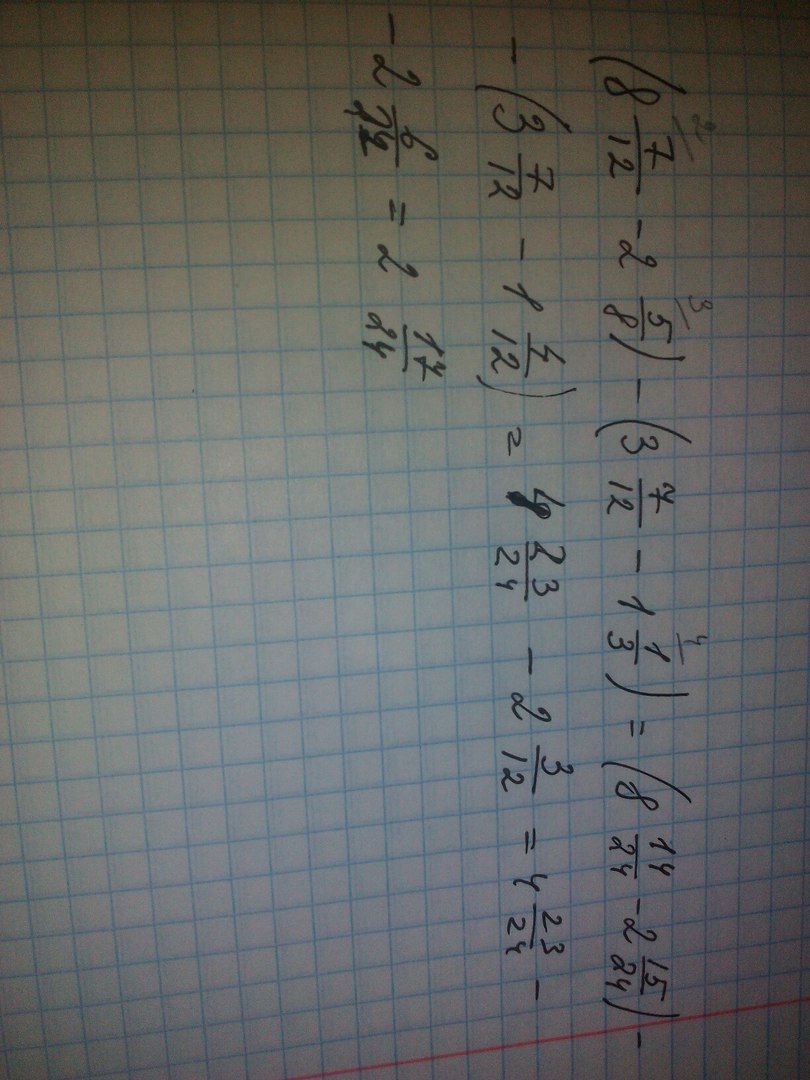 (8 7/12 - 2 5/8) - (3 7/12 - 1 1/3) = (8 14/24 - 2 15/24) -
- (3 7/12 - 1 4/12) = 23/24 - 2 3/12 = 4 23/24 -
- 2 6/24 = 2 17/24